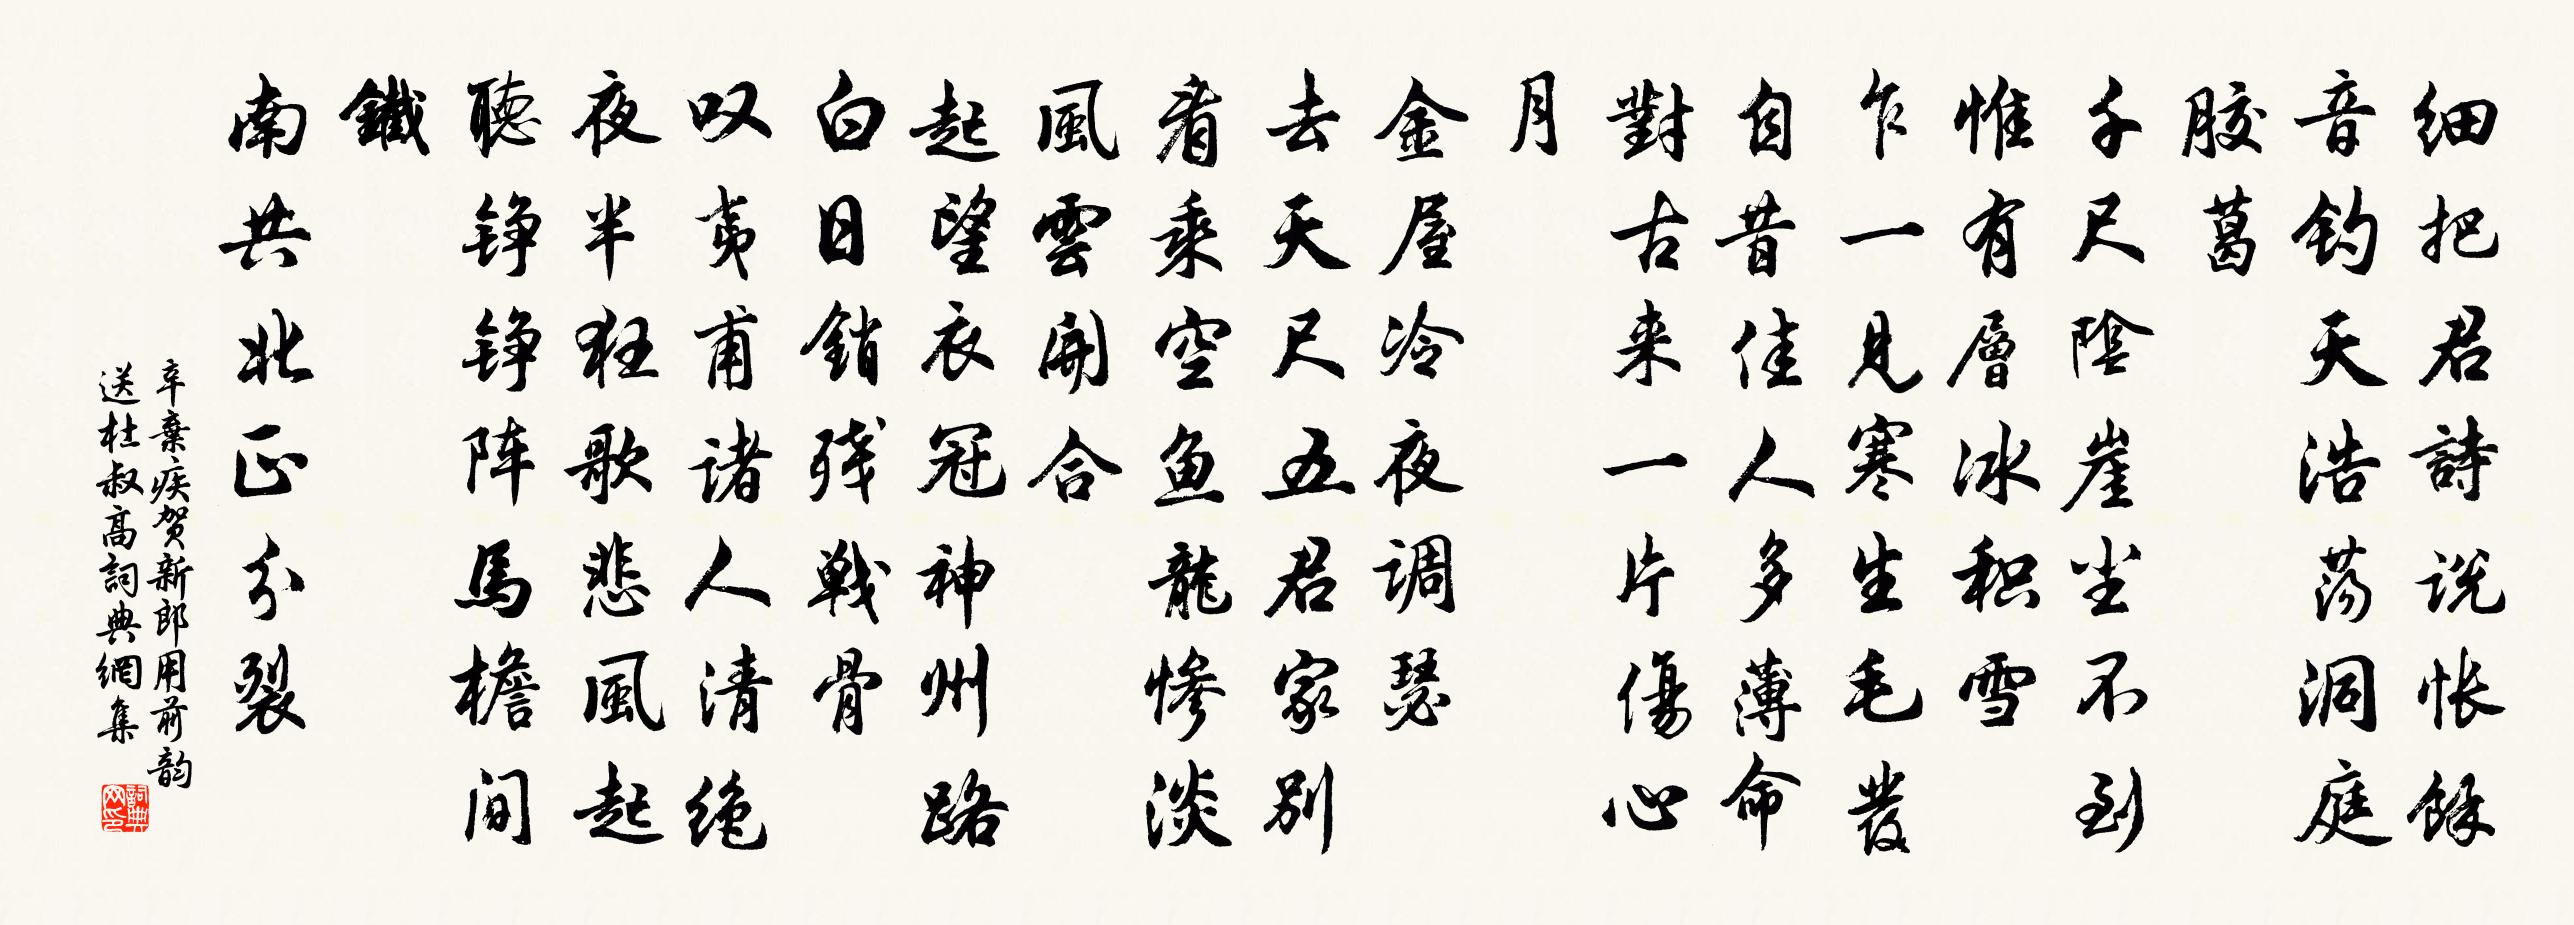 细把君詩说怅餘
音钧天浩荡洞庭
胶葛
千尺陰崖尘不到
惟有層冰积雪
乍一见寒生毛發
自昔佳人多薄命
對古来一片傷心
月
金屋冷夜调瑟
去天尺五君家别
看乘空鱼龍惨淡
風雲開合
起望衣冠神州路
白日銷残戰骨
叹夷甫诸人清绝
夜半狂歌悲風起
聽铮铮阵馬檐间
鐵
南共北正分裂
辛棄疾贺新郎用前韵
送杜叔高詞典網集
詞典网印